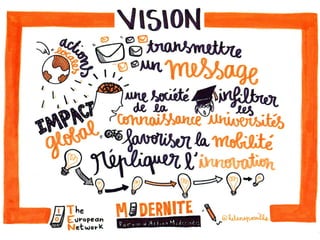 VISION
actions
locales
transmettre
un message
une société
de la
connaissance
infiltrer
les
universités
IMPACT
global
favoriser la mobilité
répliquer l'innovation
The
European
Network
MODERNITE